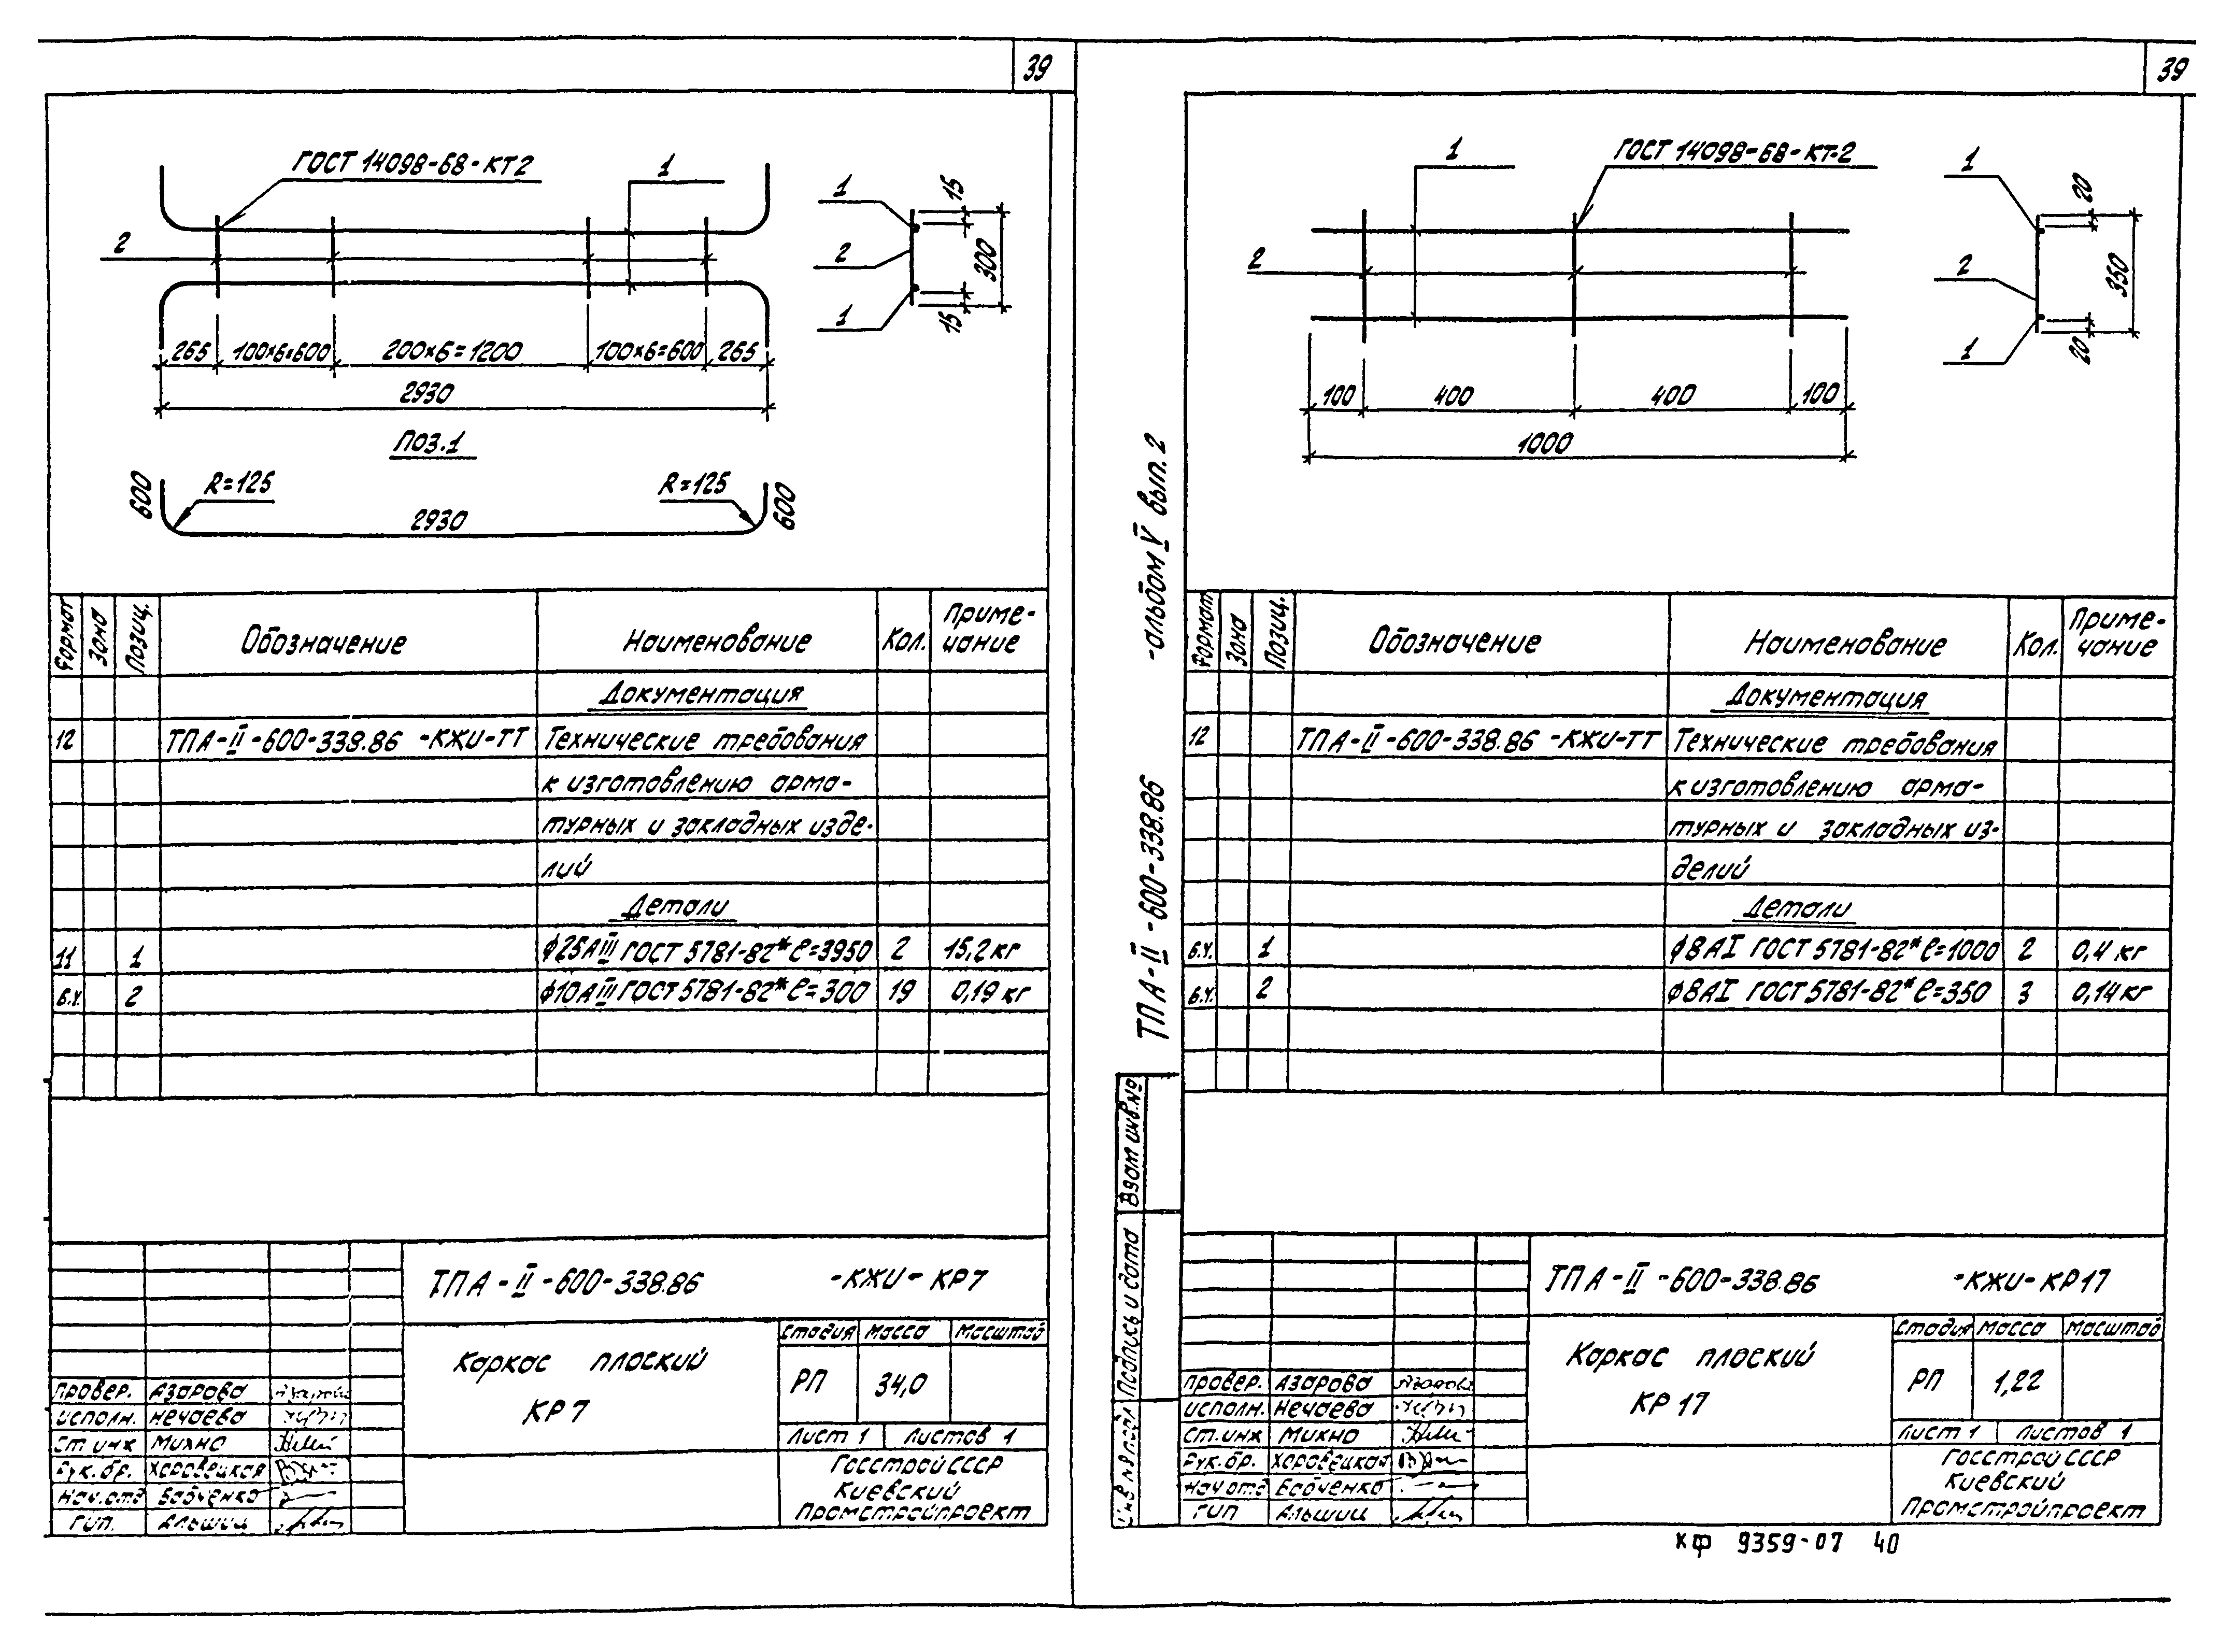 39
ГОСТ 14098-68-КТ2
1
2
265
100×6=600
200×6=1200
100×6=600
265
2930
1
2
1
15
300
15
Поз.1
600
R=125
2930
R=125
600
Формат Зона Позиц. Обозначение Наименование Кол. Приме-
чание
Документация
12 ТПА-II-600-338.86 -КЖИ-ТТ Технические требования
к изготовлению арма-
турных и закладных изде-
лий
Детали
11 1 ф25АIII ГОСТ 5781-82* ℓ=3950 2 15,2 кг
Б.Ч. 2 ф10АIII ГОСТ 5781-82* ℓ=300 19 0,19 кг
ТПА-II-600-338.86 -КЖИ- КР7
Каркас плоский
КР7
Стадия Масса Масштаб
РП 34,0
Лист 1 Листов 1
Госстрой СССР
Киевский
Промстройпроект
Провер. Азарова
Исполн. Нечаева
Ст.инж Михно
Рук.бр. Хоровецкая
Нач.отд Бабченко
ГИП. Альшиц
39
1
ГОСТ 14098-68-КТ-2
2
100
400
400
100
1000
1
2
1
20
350
20
ТПА-II-600-338.86 -альбом V вып.2
Формат Зона Позиц. Обозначение Наименование Кол. Приме-
чание
Документация
12 ТПА-II-600-338.86 -КЖИ-ТТ Технические требования
к изготовлению арма-
турных и закладных из-
делий
Детали
Б.Ч. 1 ф8АI ГОСТ 5781-82* ℓ=1000 2 0,4 кг
Б.Ч. 2 ф8АI ГОСТ 5781-82* ℓ=350 3 0,14 кг
Взам инв.№
Подпись и дата
Инв № подл
ТПА-II-600-338.86 -КЖИ-КР17
Каркас плоский
КР 17
Стадия Масса Масштаб
РП 1,22
Лист 1 Листов 1
Госстрой СССР
Киевский
Промстройпроект
Провер. Азарова
Исполн. Нечаева
Ст.инж Михно
Рук.бр. Хоровецкая
Нач отд Бабченко
ГИП Альшиц
хф 9359-07 40